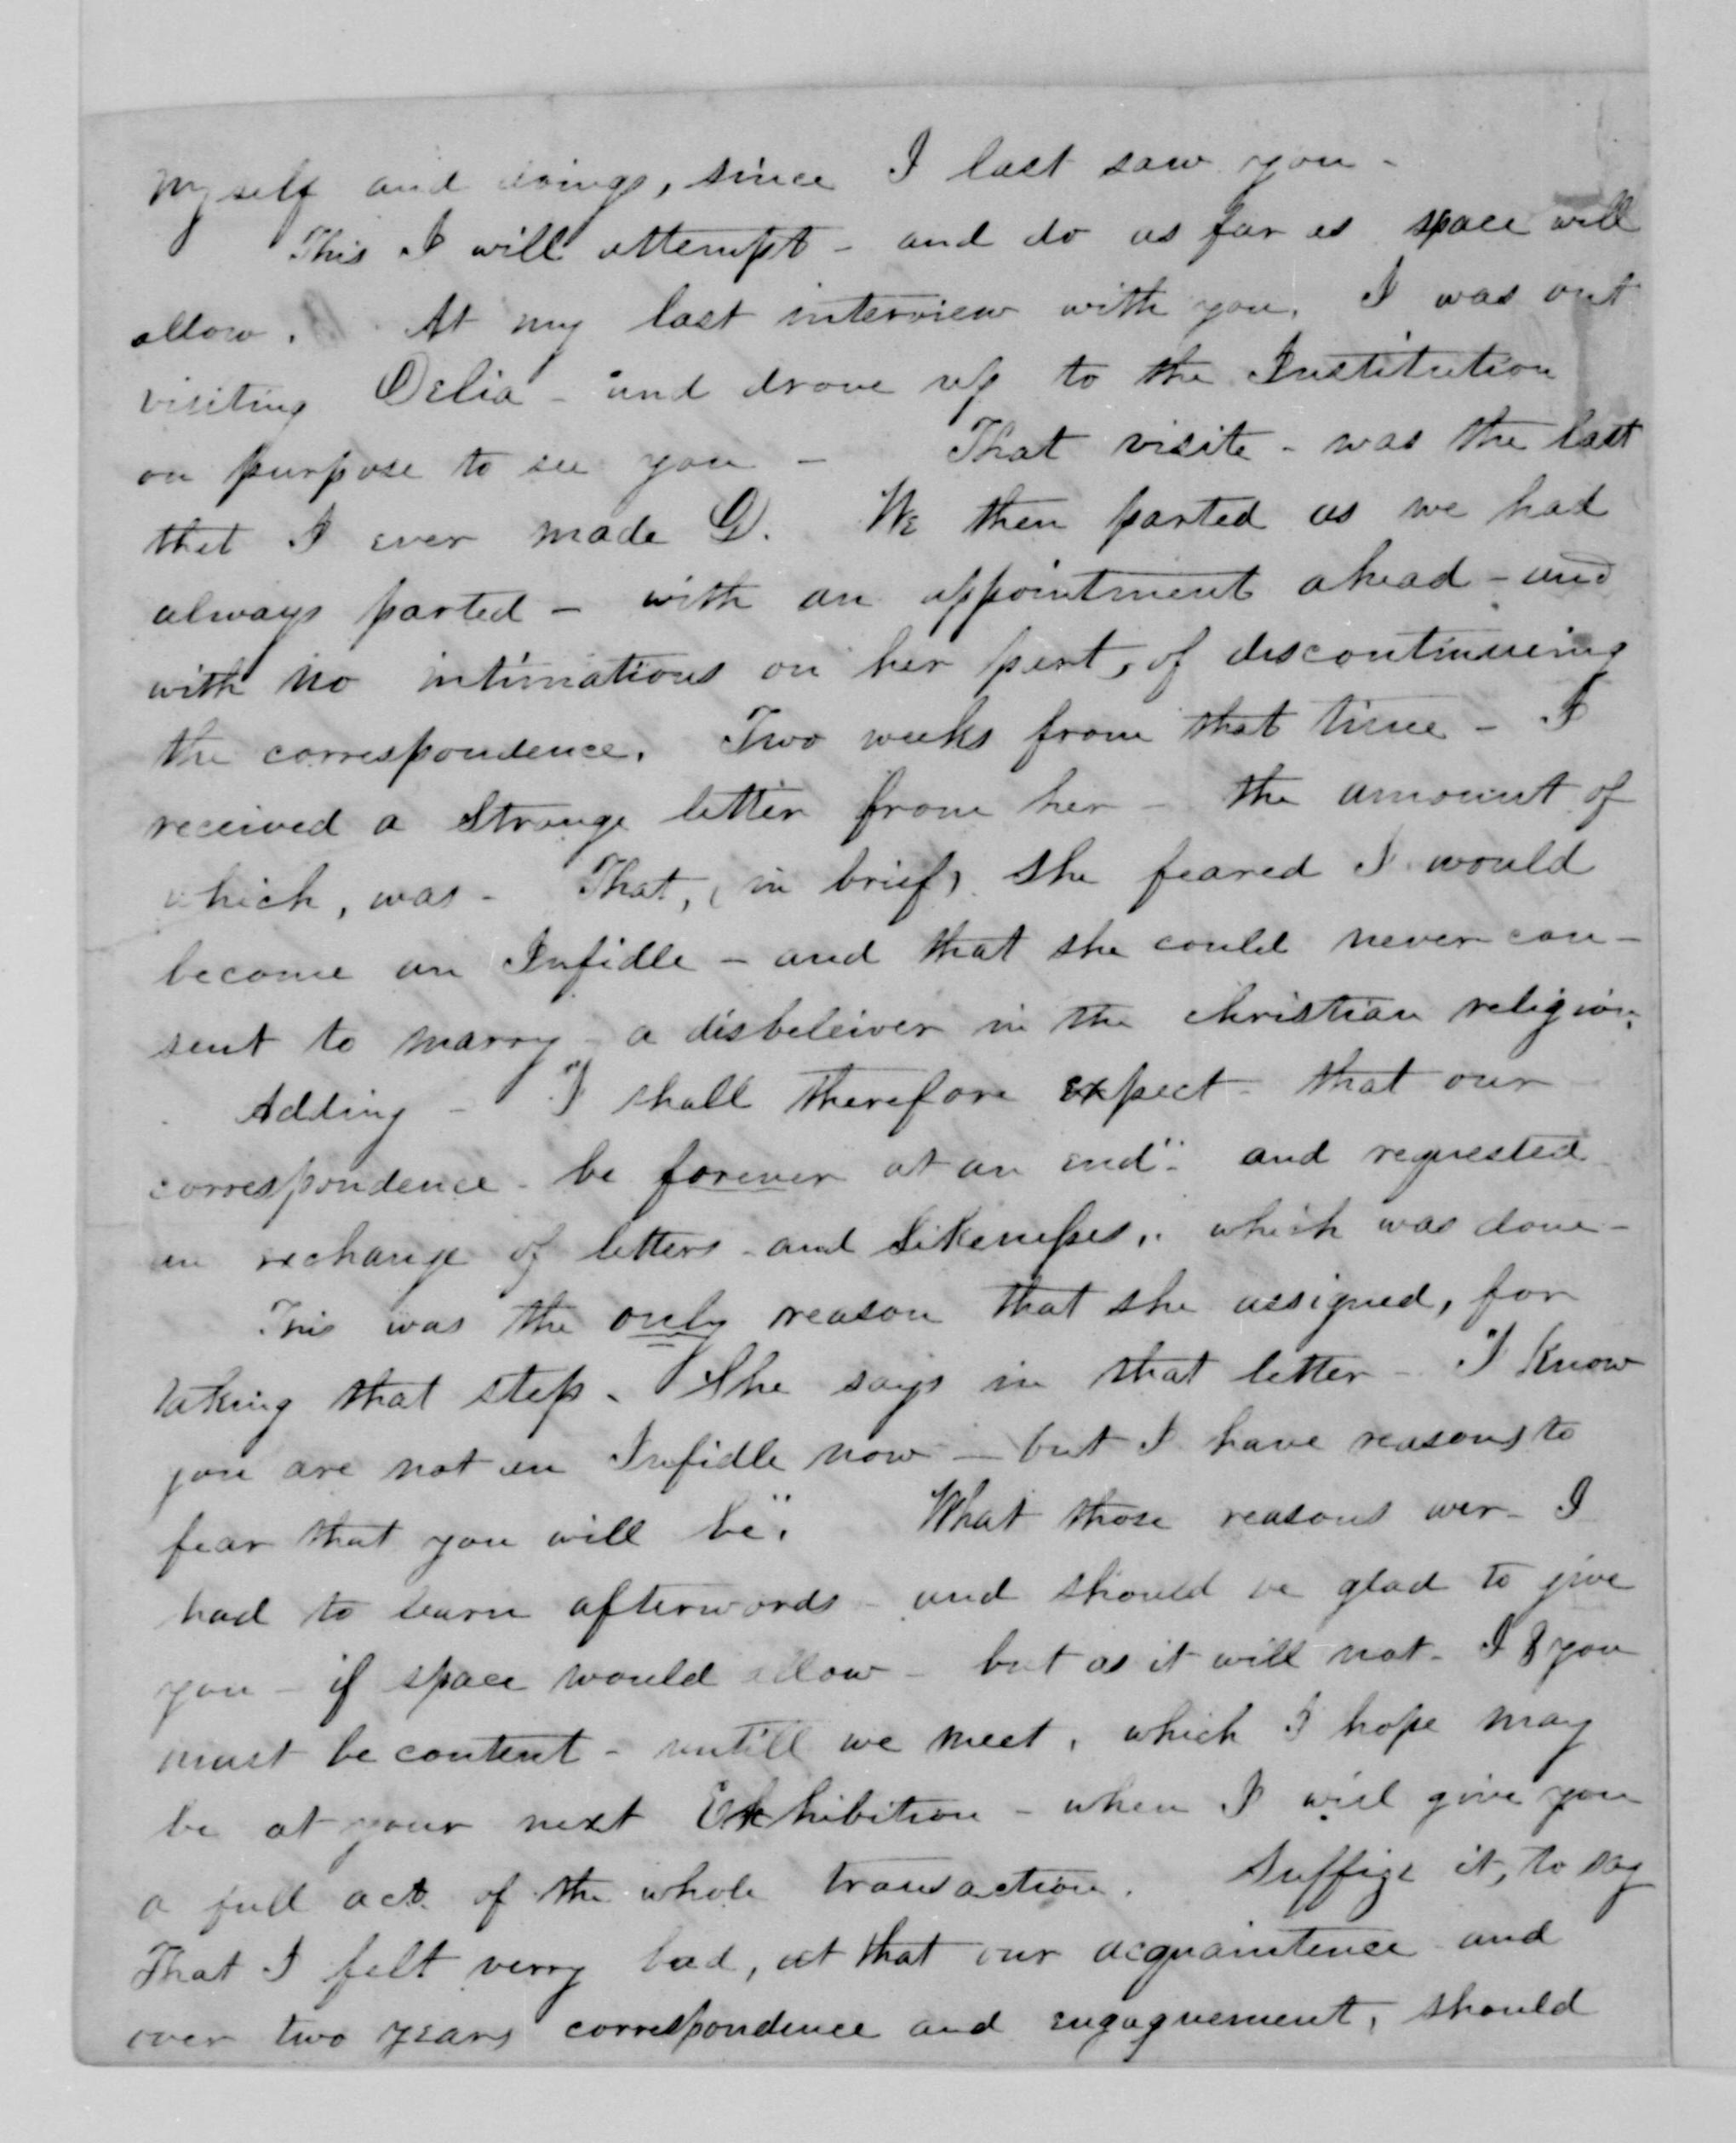 myself and doings, since I last saw you -
This I will attempt - and do as far as space will
allow. At my last interview with you, I was out
visiting Delia - and drove up to the Institution
on purpose to see you - That visite - was the last
that I ever made D. We then parted as we had
always parted - with an appointment ahead - and
with no intimations on her part, of discontinueing
the correspondence. Two weeks from that time - I
received a strange letter from her - the amount of
which, was - That, (in brief) she feared I would
become an Infidle - and that she could never con-
sent to marry - a disbeleiver in the christian religion.
Adding - "I shall therefore expect - that our
correspondence - be forever at an end". and requested
an exchange of letters - and Likenesses, which was done -
This was the only reason that she assigned, for
taking that step. She says in that letter - "I know
you are not an Infidle now - but I have reasons to
fear that you will be". What those reasons wer - I
had to learn afterwords - and should be glad to give
you - if space would allow - but as it will not - I & you
must be content - untill we meet, which I hope may
be at your next Exhibition - when I will give you
a full act. of the whole transaction. Suffize it, to say
That I felt verry bad, at that our acquaintence and
over two years correspondence and engagnement, should